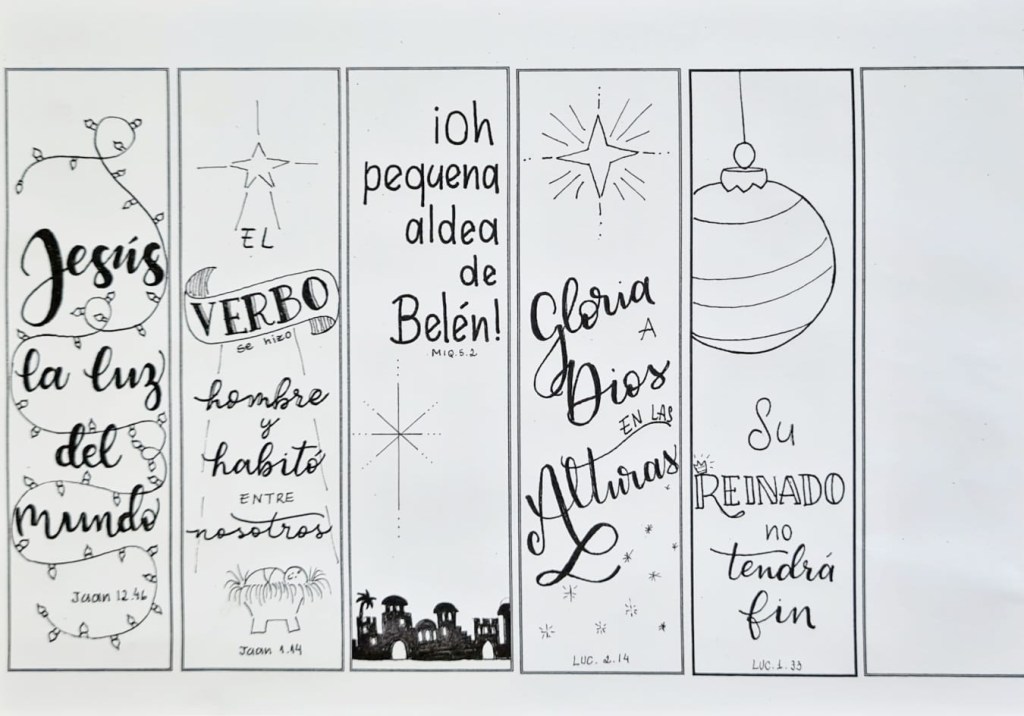 Jesús
la luz
del
mundo
Jaan 12.46
EL
VERBO
se hizo
hombre
y
habitó
ENTRE
nosotros
Jaan 1.14
¡Oh
pequena
aldea
de
Belén!
MIQ.5.2
Gloria
A
Dios
EN LAS
Alturas
LUC. 2.14
Su
REINADO
no
tendrá
fin
LUC. 1. 33